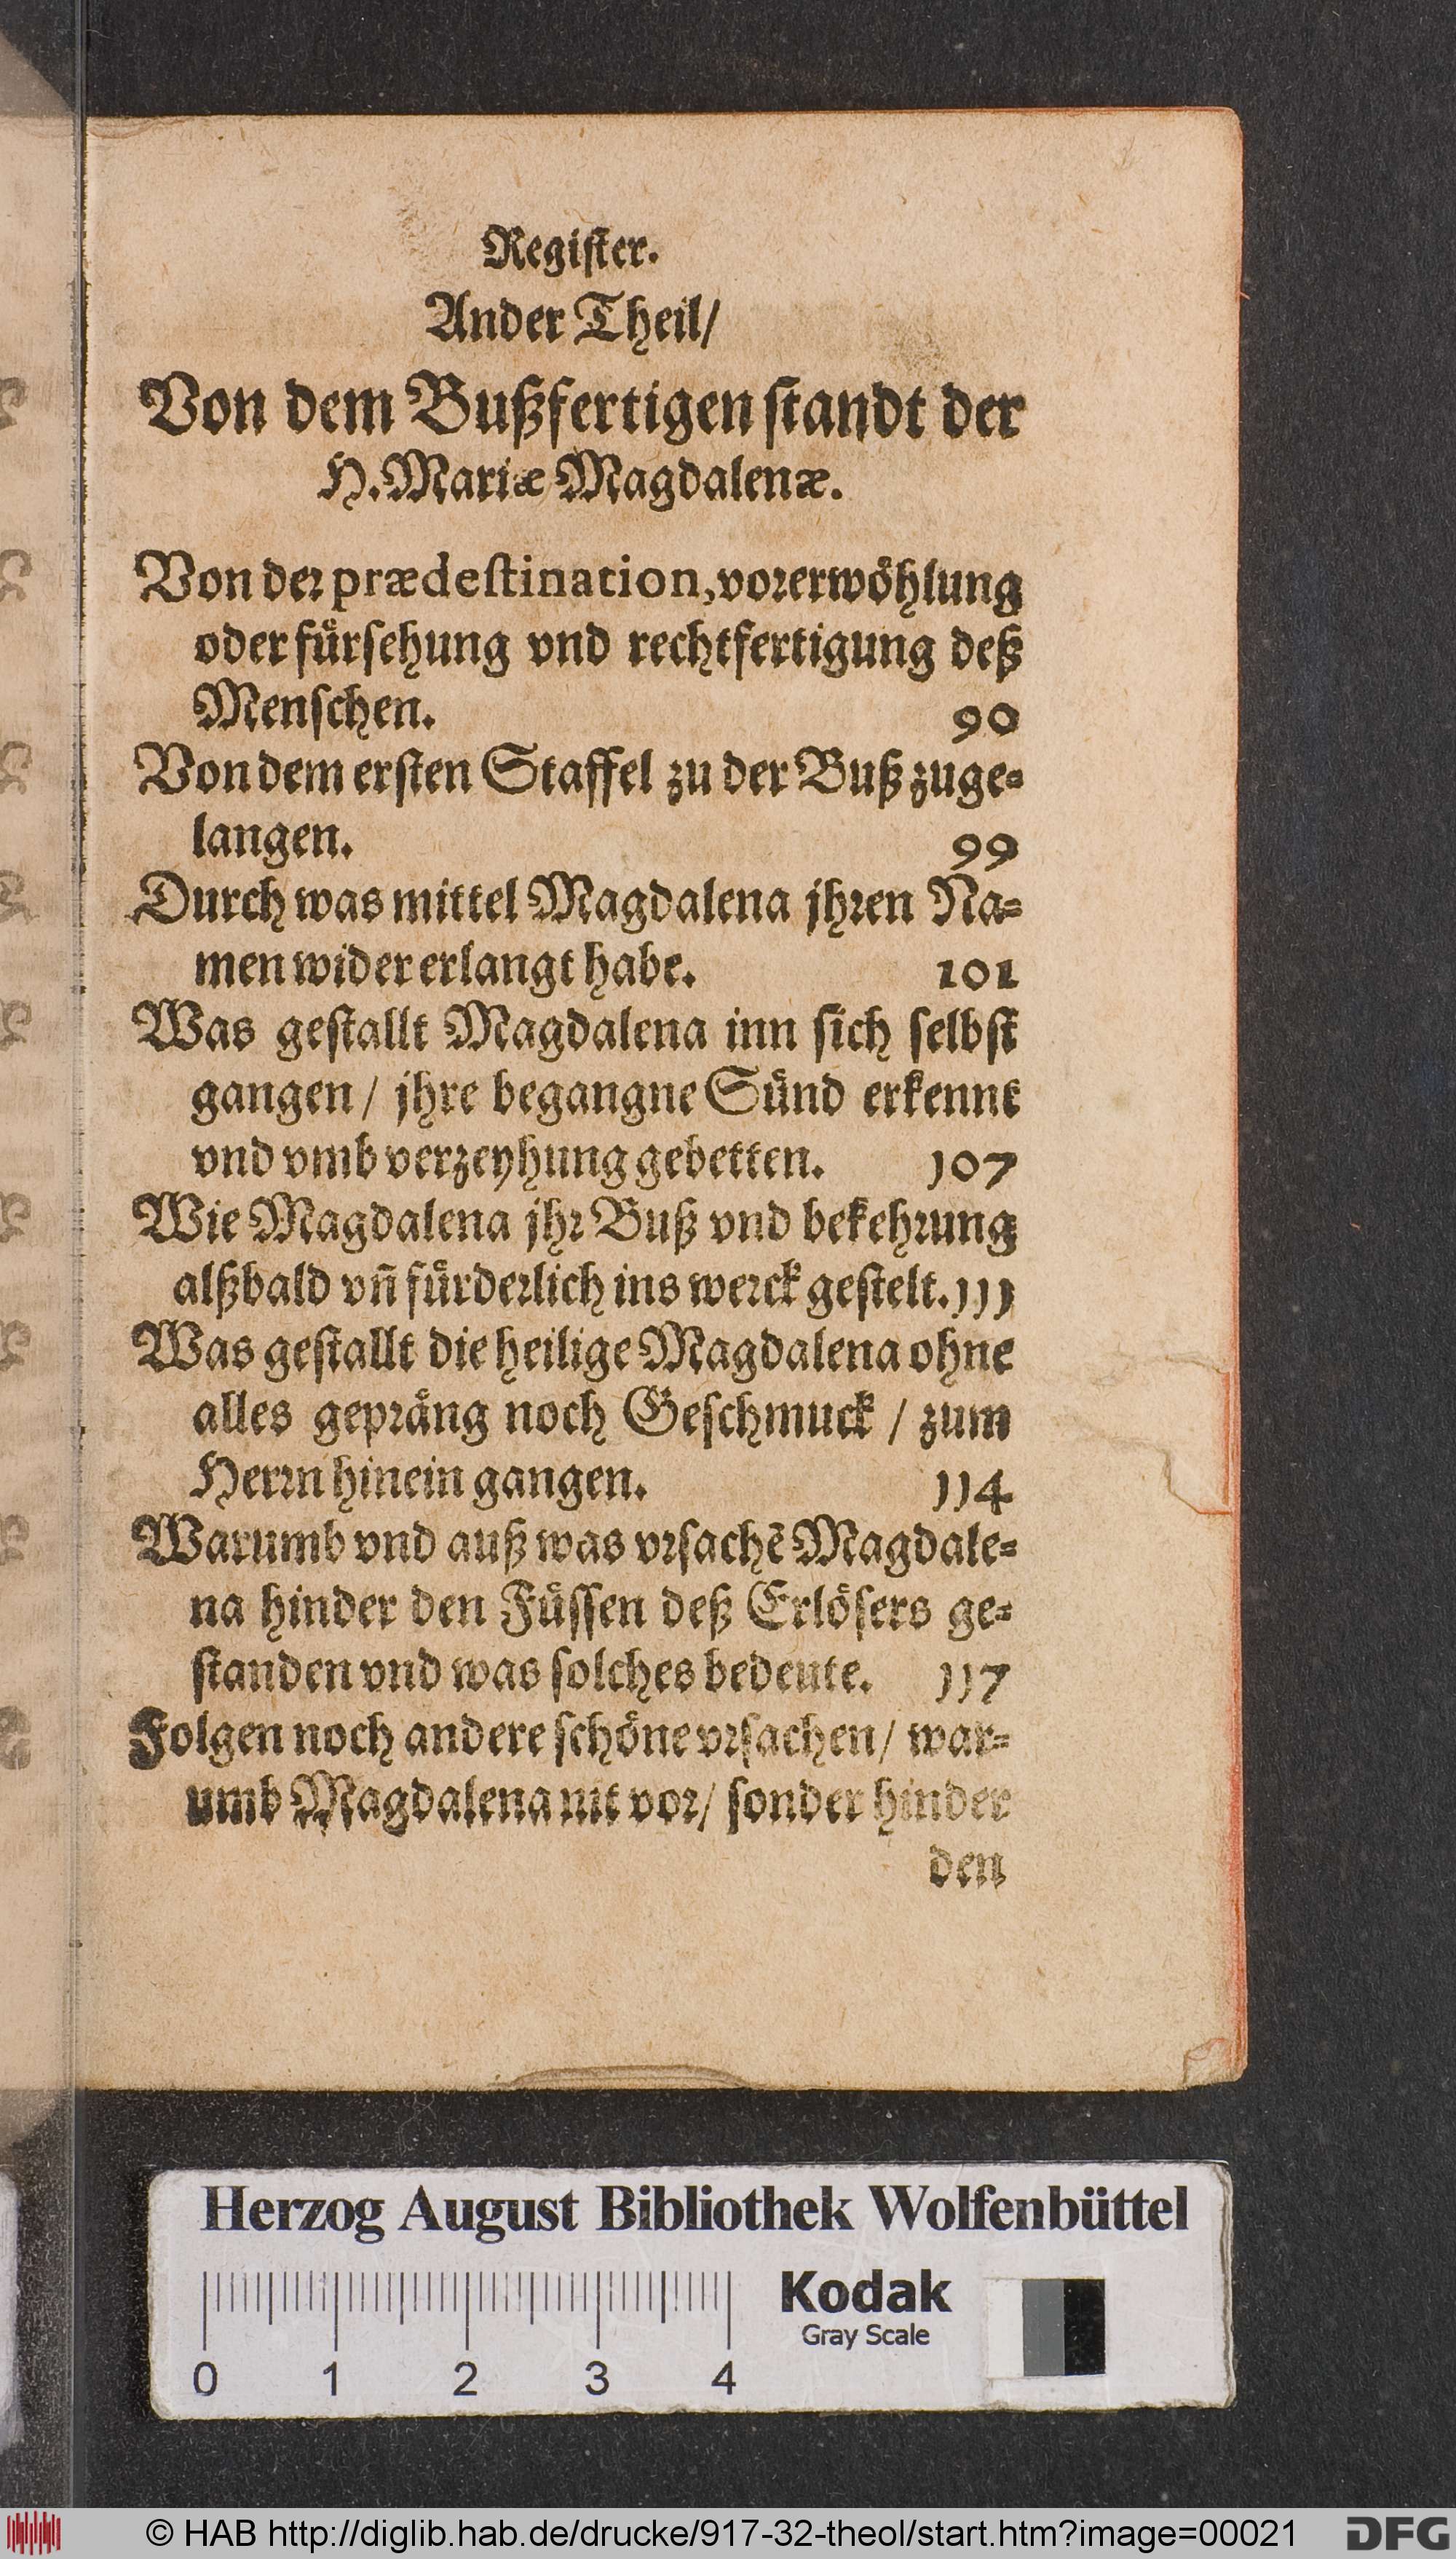 Regiſter.
Ander Theil/
Von dem Bußfertigen ſtandt der
H. Mariæ Magdalenæ.
Von der prædeſtination, vorerwöhlung
oder fürſehung vnd rechtfertigung deß
Menſchen. 90
Von dem erſten Staffel zu der Buß zuge-
langen. 99
Durch was mittel Magdalena jhren Na-
men wider erlangt habe. 101
Was geſtallt Magdalena inn ſich ſelbſt
gangen / jhre begangne Sünd erkennt
vnd vmb verzeyhung gebetten. 107
Wie Magdalena jhr Buß vnd bekehrung
alßbald vñ fürderlich ins werck geſtelt. 111
Was geſtallt die heilige Magdalena ohne
alles gepräng noch Geſchmuck / zum
Herrn hinein gangen. 114
Warumb vnd auß was vrſachẽ Magdale-
na hinder den Füſſen deß Erlöſers ge-
ſtanden vnd was ſolches bedeute. 117
Folgen noch andere ſchöne vrſachen/ war-
umb Magdalena nit vor/ ſonder hinder
den
Herzog August Bibliothek Wolfenbüttel
Kodak
Gray Scale
0 1 2 3 4
© HAB http://diglib.hab.de/drucke/917-32-theol/start.htm?image=00021
DFG